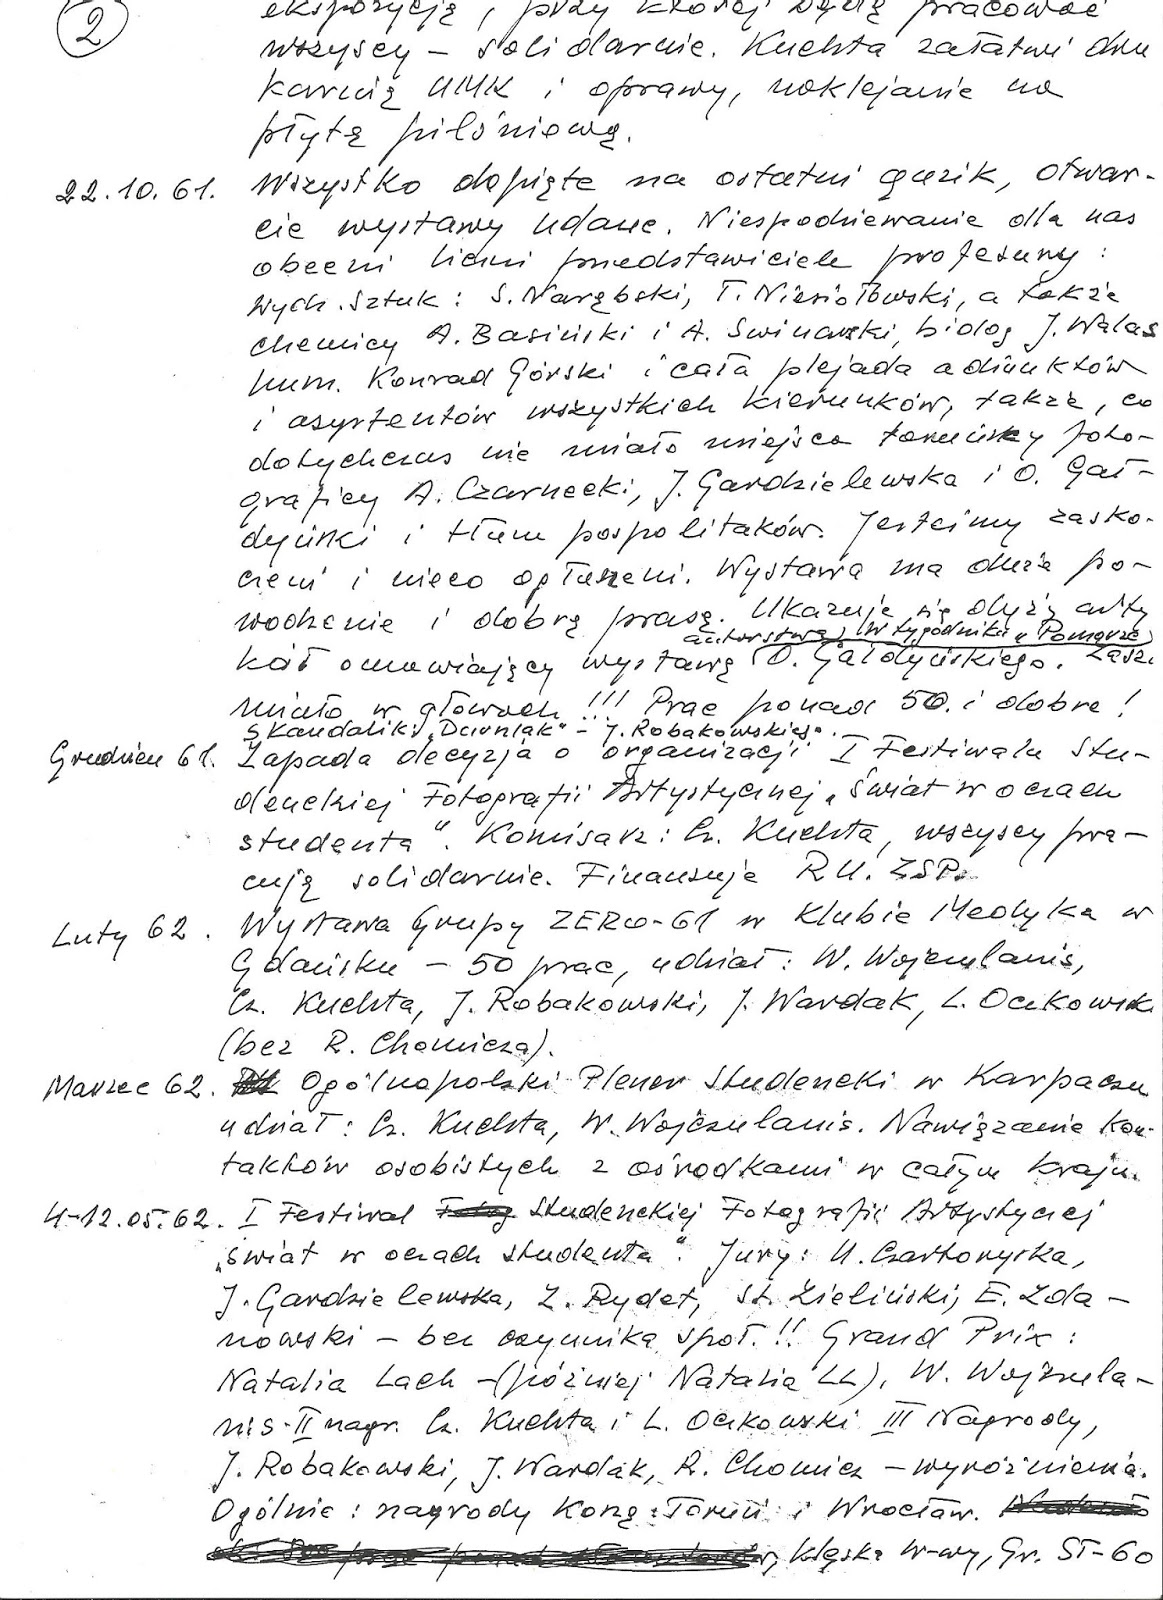 2
ekspozycją, przy której będą pracować
wszyscy – solidarnie. Kuchta załatwi dru
karnią UMK i oprawy, naklejanie na
płytę pilśniową.
22.10.61. Wszystko dopięte na ostatni guzik, otwar-
cie wystawy udane. Niespodziewanie dla nas
obecni liczni przedstawiciele profesury:
Wych. Sztuk: S. Narębski, T. Niesiołowski, a także
chemicy A. Basiński i A. Swinarski, biolog J. Walas
hum. Konrad Górski i cała plejada adiunktów
i asystentów wszystkich kierunków, także, co
dotychczas nie miało miejsca toruńscy foto-
graficy A. Czarnecki, J. Gardzielewska i O. Gał-
dyński i tłum pospolitaków. Jesteśmy zasko-
czeni i nieco ogłuszeni. Wystawa ma duże po-
wodzenie i dobrą prasę. Ukazuje się duży arty
autorstwa, W tygodniku „Pomorze”
kuł omawiający wystawę O. Gałdyńskiego. Zasz.
miało w głowach!!! Prac ponad 50. i dobre!
Skandalik: „Dzwniak” – J. Robakowskiego.
Grudzień 61. Zapada decyzja o organizacji I Festiwalu Stu-
denckiej Fotografii Artystycznej „Świat w oczach
studenta”. Komisarz: Cz. Kuchta, wszyscy pra-
cują solidarnie. Finansuje R.U. ZSP.
Luty 62. Wystawa Grupy ZERO-61 w Klubie Medyka w
Gdańsku – 50 prac, udział: W. Wojczulanis,
Cz. Kuchta, J. Robakowski, J. Wardak, L. Oczkowski
(bez R. Chomicza).
Marzec 62. Ogólnopolski Plener Studencki w Karpaczu
udział: Cz. Kuchta, W. Wojczulanis. Nawiązanie kon-
taktów osobistych z ośrodkami w całym kraju.
4-12.05.62. I Festiwal Fotog Studenckiej Fotografii Artystycznej
„Świat w oczach studenta”. Jury: U. Czartoryska,
J. Gardzielewska, Z. Rydet, St. Zieliński, E. Zda-
nowski – bez czynnika społ.!! Grand Prix:
Natalia Lach – (później Natalia LL), W. Wojczula-
nis – II nagr. Cz. Kuchta i L. Oczkowski III Nagrody,
J. Robakowski, J. Wardak, R. Chomicz – wyróżnienia.
Ogólnie: nagrody Kong: Toruń i Wrocław.
klęska W-wy, Gr. ST-60